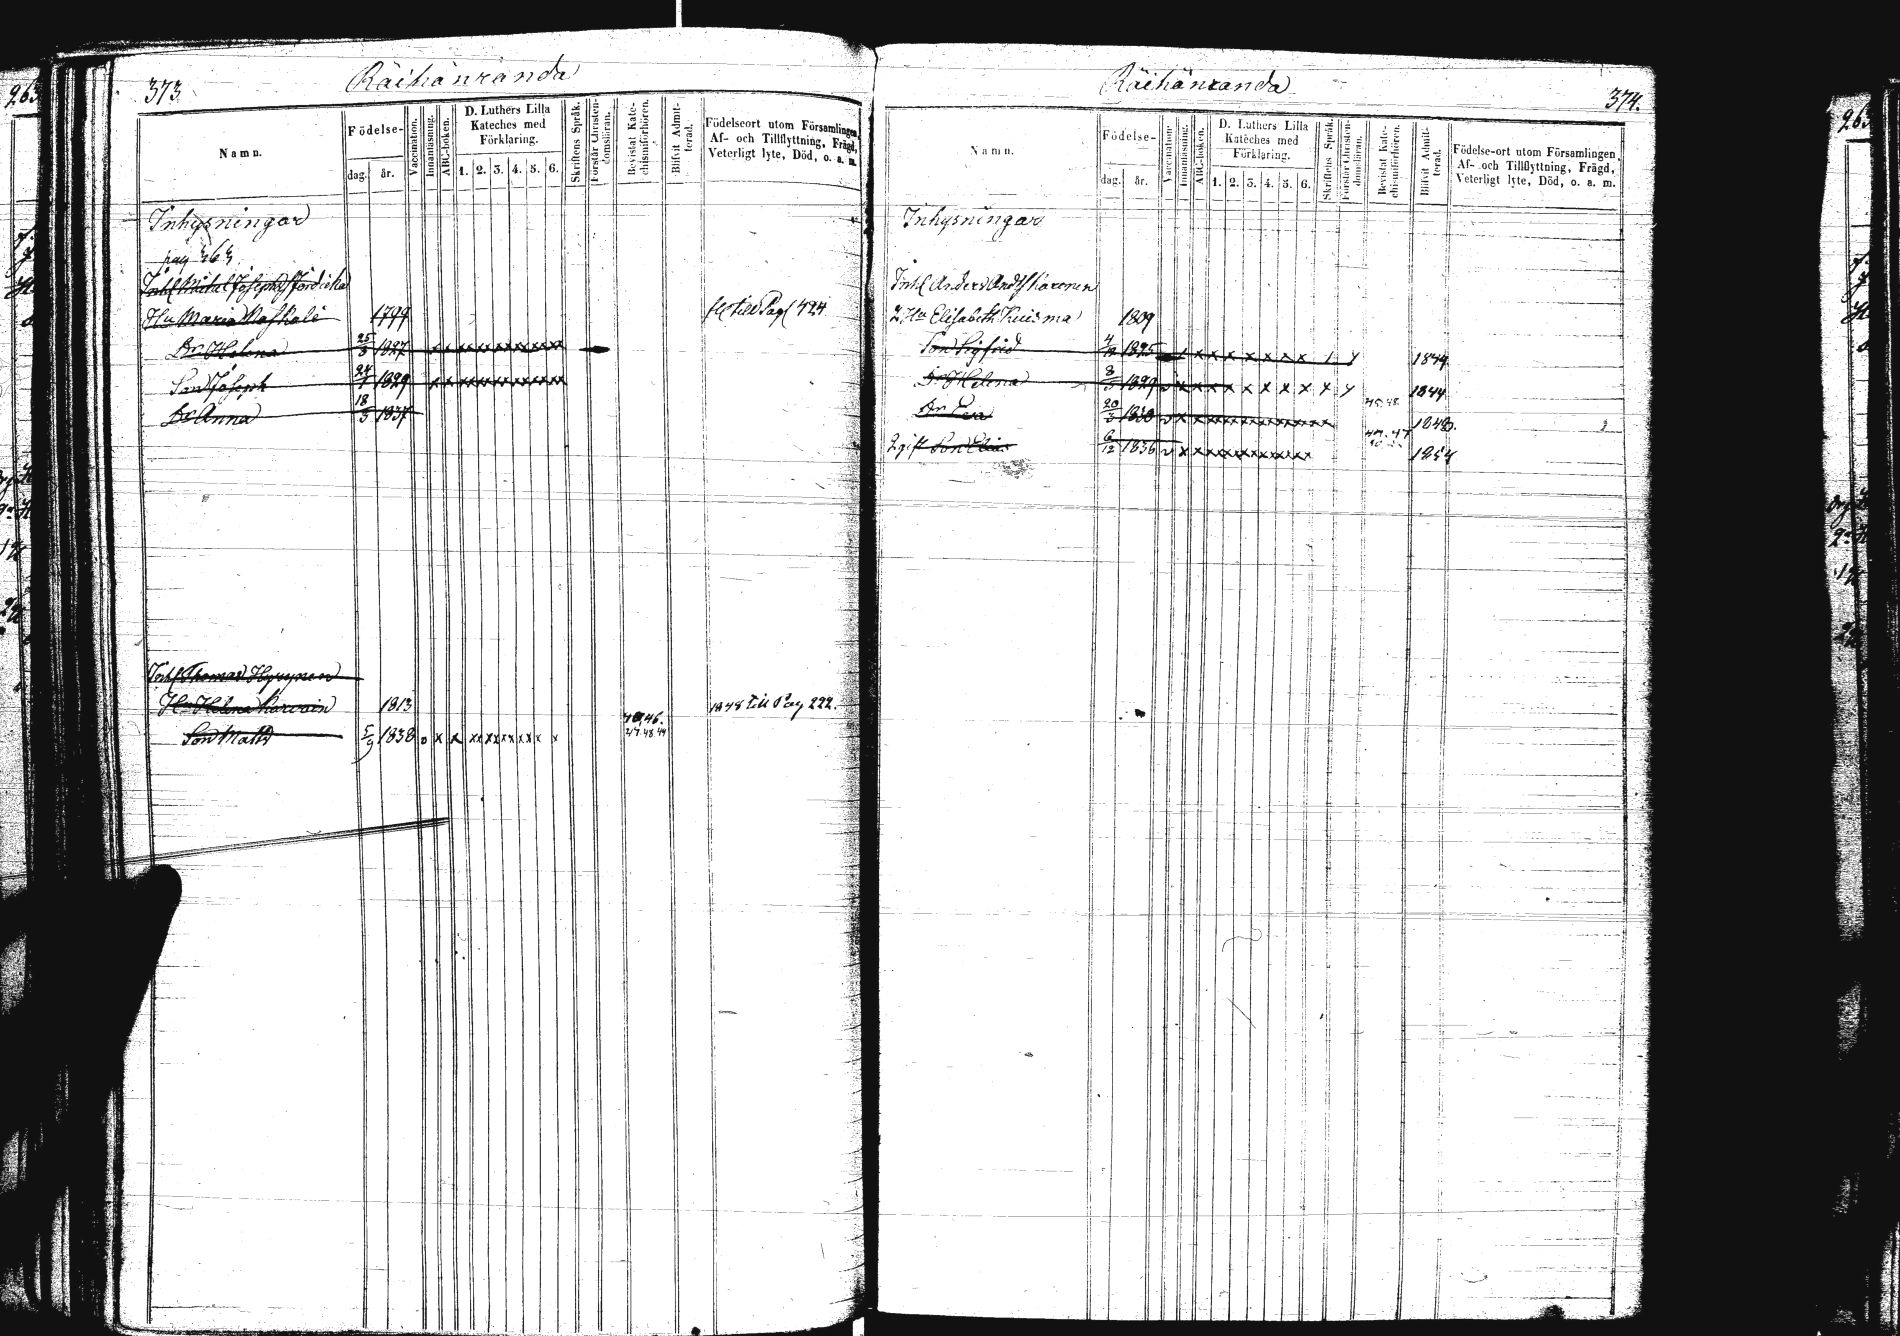 373.
Räihänranda
Namn.
Födelse-
dag. år.
Vaccination.
Innanläsning.
ABC-boken.
D. Luthers Lilla
Kateches med
Förklaring.
1. 2. 3. 4. 5. 6.
Skriftens Språk.
Förstår Christen-
domsläran.
Bevistat Kate-
chismiförhören.
Blifvit Admit-
terad.
Födelseort utom Församlingen,
Af- och Tillflyttning, Frägd,
Veterligt lyte, Död, o. a. m.
Inhysningar
pag 363
Inh Michel Josephs
Hu Maria 1799 till Pag 424
Dr Helena 25/8 1827 x x x x x x x x x x x
Son Joseph 24/7 1829 x x x x x x x x x x x
Dr Anna 18/5 1837
Inh Thomas Hyvynen
Hu Helena 1813 1848 till Pag 222.
Son Matts 5/9 1838 o x x x x x x x x x x x x 46. 47.48.49
Räihänranda
374.
Namn.
Födelse-
dag. år.
Vaccination.
Innanläsning.
ABC-boken.
D. Luthers Lilla
Katèches med
Förklaring.
1. 2. 3. 4. 5. 6.
Skriftens Språk.
Förstår Christen-
domsläran.
Bevistat Kate-
chismiförhören.
Blifvit Admit-
terad.
Födelse-ort utom Församlingen,
Af- och Tillflyttning, Frägd,
Veterligt lyte, Död, o. a. m.
Inhysningar
Inh Anders
2. Hu Elisabeth Kuisma 1809
Son Sigfrid 4/12 1825 x x x x x x x 1844
Dr Helena 8/5 1829 x x x x x x x x 1844
Dr Eva 20/3 1830 x x x x x x x x x x 45.48. 1848.
2 gift Son Elias 6/12 1836 x x x x x x x x x x 47 1854